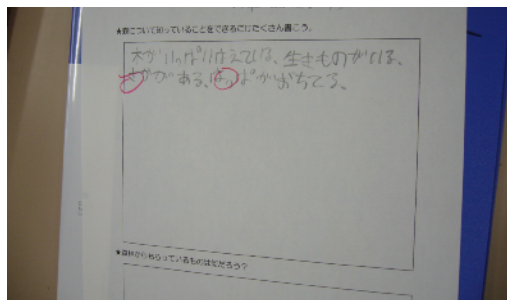 ★森について知っていることをできるだけたくさん書こう。
木がいっぱいはえている、生きものがいる、
さかがある、はっぱがおちてる、
★森林からもらっているものはなんだろう?